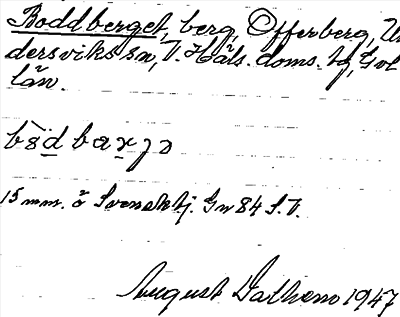 Boddberget, berg, Offerberg, Un
dersviks sn, V. Häls. doms. tg, Gvl
län.
15 mm. ö Svenshtj. Gn 84 S.V.
August Dalhem 1947